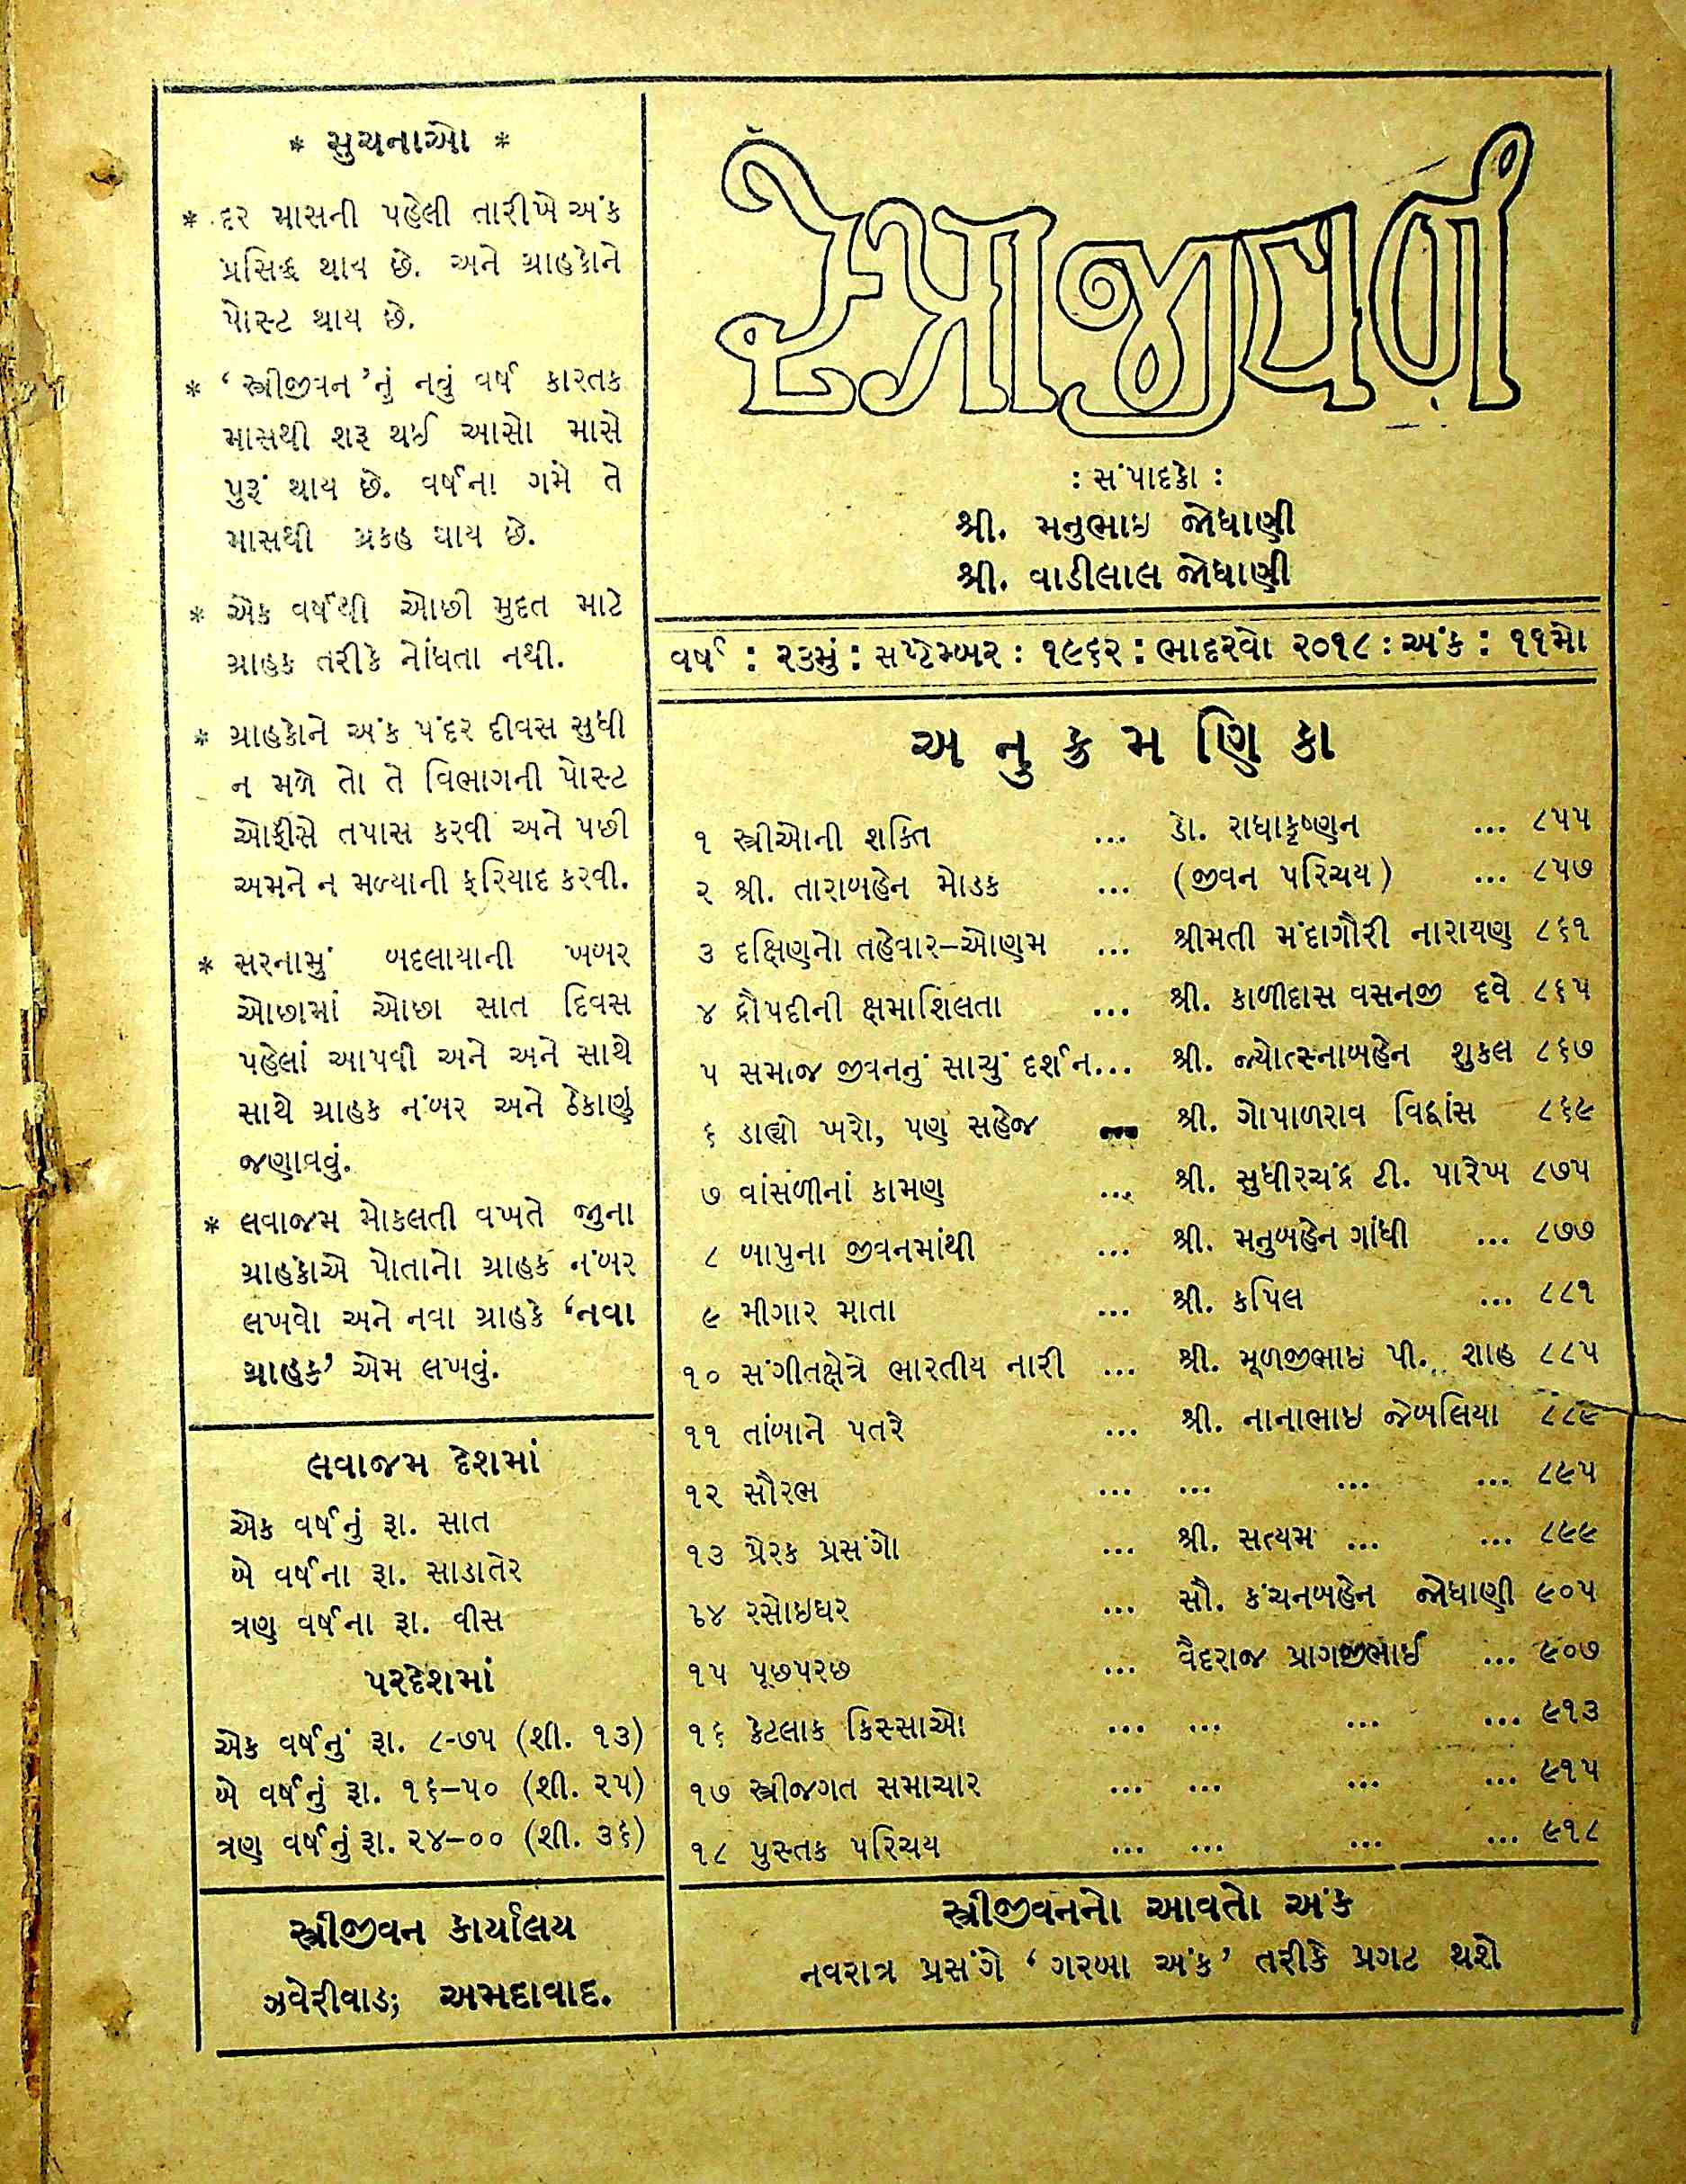 * સુચનાઓ *
* દર માસની પહેલી તારીખે અંક
પ્રસિદ્ધ થાય છે. અને ગ્રાહકોને
પોસ્ટ થાય છે.
* ‘ સ્ત્રીજીવન ’નું નવું વર્ષ કારતક
માસથી શરૂ થઈ આસો માસે
પુરૂં થાય છે. વર્ષના ગમે તે
માસથી ગ્રકહ થાય છે.
* એક વર્ષથી ઓછી મુદત માટે
ગ્રાહક તરીકે નોંધતા નથી.
* ગ્રાહકોને અંક પંદર દીવસ સુધી
ન મળે તો તે વિભાગની પોસ્ટ
ઓફીસે તપાસ કરવી અને પછી
અમને ન મળ્યાની ફરિયાદ કરવી.
* સરનામું બદલાયાની ખબર
ઓછામાં ઓછા સાત દિવસ
પહેલાં આપવી અને અને સાથે
સાથે ગ્રાહક નંબર અને ઠેકાણું
જણાવવું.
* લવાજમ મોકલતી વખતે જુના
ગ્રાહકોએ પોતાનો ગ્રાહક નંબર
લખવો અને નવા ગ્રાહકે ‘નવા
ગ્રાહક’ એમ લખવું.
લવાજમ દેશમાં
એક વર્ષનું રૂા. સાત
બે વર્ષના રૂા. સાડાતેર
ત્રણ વર્ષના રૂા. વીસ
પરદેશમાં
એક વર્ષનું રૂા. ૮-૭૫ (શી. ૧૩)
બે વર્ષનું રૂા. ૧૬–૫૦ (શી. ૨૫)
ત્રણ વર્ષનું રૂા. ૨૪–૦૦ (શી. ૩૬)
સ્ત્રીજીવન કાર્યાલય
ઝવેરીવાડ; અમદાવાદ.
સ્ત્રીજીવન
: સંપાદકો :
શ્રી. મનુભાઇ જોધાણી
શ્રી. વાડીલાલ જોધાણી
વર્ષ : ૨૩મું : સપ્ટેમ્બર : ૧૯૬૨ : ભાદરવો ૨૦૧૮ : અંક : ૧૧મો
અ નુ ક્ર મ ણિ કા
૧ સ્ત્રીઓની શક્તિ ... ડો. રાધાકૃષ્ણન ... ૮૫૫
૨ શ્રી. તારાબહેન મોડક ... (જીવન પરિચય) ... ૮૫૭
૩ દક્ષિણનો તહેવાર–ઓણમ ... શ્રીમતી મંદાગૌરી નારાયણ ૮૬૧
૪ દ્રૌપદીની ક્ષમાશિલતા ... શ્રી. કાળીદાસ વસનજી દવે ૮૬૫
૫ સમાજ જીવનનું સાચું દર્શન... શ્રી. જ્યોત્સ્નાબહેન શુકલ ૮૬૭
૬ ડાહ્યો ખરો, પણ સહેજ ... શ્રી. ગોપાળરાવ વિદ્વાંસ ૮૬૯
૭ વાંસળીનાં કામણ ... શ્રી. સુધીરચંદ્ર ટી. પારેખ ૮૭૫
૮ બાપુના જીવનમાંથી ... શ્રી. મનુબહેન ગાંધી ... ૮૭૭
૯ મીગાર માતા ... શ્રી. કપિલ ... ૮૮૧
૧૦ સંગીતક્ષેત્રે ભારતીય નારી ... શ્રી. મૂળજીભાઇ પી. શાહ ૮૮૫
૧૧ તાંબાને પતરે ... શ્રી. નાનાભાઇ જેબલિયા ૮૮૯
૧૨ સૌરભ ... ... ... ... ૮૯૫
૧૩ પ્રેરક પ્રસંગો ... શ્રી. સત્યમ ... ... ૮૯૯
૧૪ રસોઇઘર ... સૌ. કંચનબહેન જોધાણી ૯૦૫
૧૫ પૂછપરછ ... વૈદરાજ પ્રાગજીભાઈ ... ૯૦૭
૧૬ કેટલાક કિસ્સાઓ ... ... ... ... ૯૧૩
૧૭ સ્ત્રીજગત સમાચાર ... ... ... ... ૯૧૫
૧૮ પુસ્તક પરિચય ... ... ... ... ૯૧૮
સ્ત્રીજીવનનો આવતો અંક
નવરાત્ર પ્રસંગે ‘ ગરબા અંક’ તરીકે પ્રગટ થશે